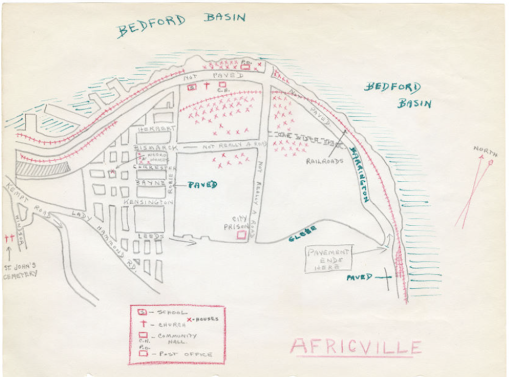 BEDFORD BASIN
BEDFORD
BASIN
P.O.
NOT PAVED
C.H.
NORTH
BISMARCK
NOT REALLY A ROAD
RAILROADS
BARRINGTON
PAVED
KENSINGTON
NOT REALLY A ROAD
CITY
PRISON
GLOBE
LEEDS
KEMPT ROAD
LADY HAMMOND RD
PAVEMENT
ENDS
HERE
PAVED
ST. JOHN'S
CEMETERY
- SCHOOL
X-HOUSES
- CHURCH
- COMMUNITY
HALL
C.H.
P.O.
- POST OFFICE
AFRICVILLE